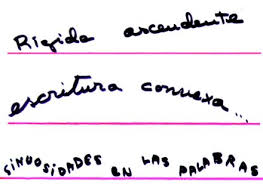 Rigida ascendente
escritura convexa...
SINUOSIDADES EN LAS PALABRAS